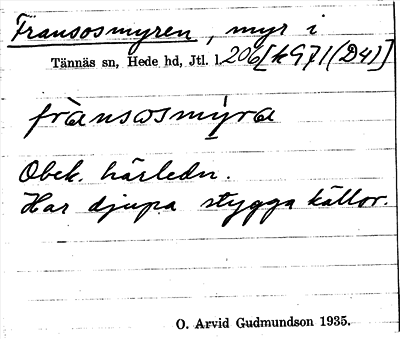 Fransosmyren, myr i
Tännäs sn, Hede hd, Jtl. l. 206 [k971(D41)]
frànsosmýra
Obek. härledn.
Har djupa stygga källor.
O. Arvid Gudmundson 1935.